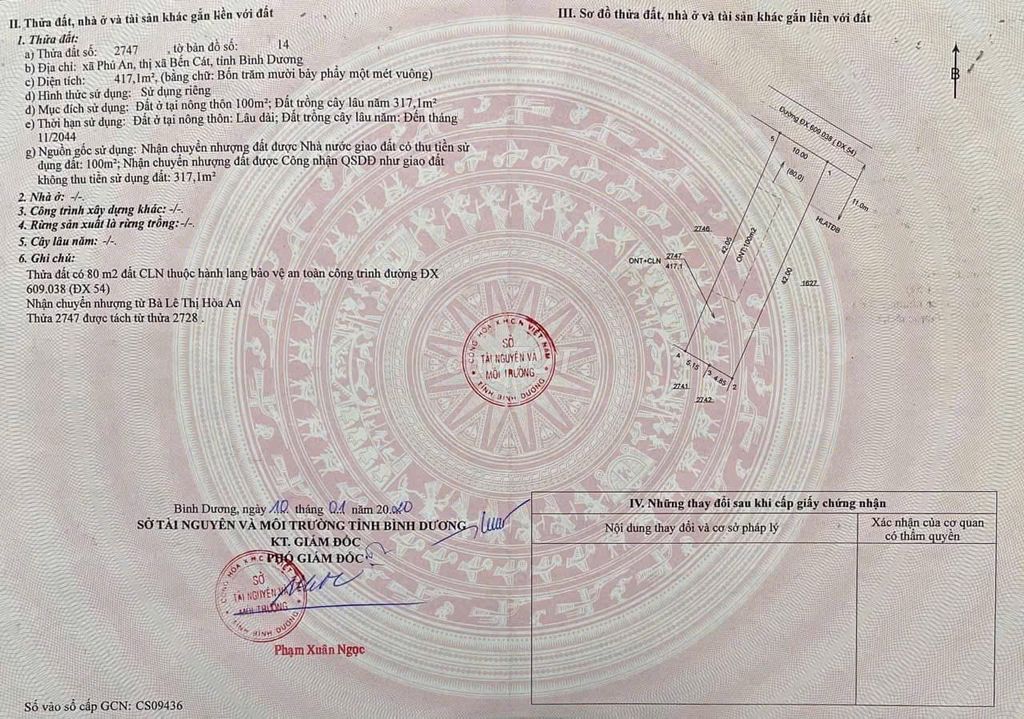 II. Thửa đất, nhà ở và tài sản khác gắn liền với đất
1. Thửa đất:
a) Thửa đất số: 2747 , tờ bản đồ số: 14
b) Địa chỉ: xã Phú An, thị xã Bến Cát, tỉnh Bình Dương
c) Diện tích: 417,1m², (bằng chữ: Bốn trăm mười bảy phẩy một mét vuông)
d) Hình thức sử dụng: Sử dụng riêng
đ) Mục đích sử dụng: Đất ở tại nông thôn 100m²; Đất trồng cây lâu năm 317,1m²
e) Thời hạn sử dụng: Đất ở tại nông thôn: Lâu dài; Đất trồng cây lâu năm: Đến tháng
11/2044
g) Nguồn gốc sử dụng: Nhận chuyển nhượng đất được Nhà nước giao đất có thu tiền sử
dụng đất: 100m²; Nhận chuyển nhượng đất được Công nhận QSDĐ như giao đất
không thu tiền sử dụng đất: 317,1m²
2. Nhà ở: -/-.
3. Công trình xây dựng khác: -/-.
4. Rừng sản xuất là rừng trồng: -/-.
5. Cây lâu năm: -/-.
6. Ghi chú:
Thửa đất có 80 m2 đất CLN thuộc hành lang bảo vệ an toàn công trình đường ĐX
609.038 (ĐX 54)
Nhận chuyển nhượng từ Bà Lê Thị Hòa An
Thửa 2747 được tách từ thửa 2728 .
CỘNG HÒA X.H.C.N VIỆT NAM
SỞ
TÀI NGUYÊN VÀ
MÔI TRƯỜNG
TỈNH BÌNH DƯƠNG
Bình Dương, ngày 10 tháng 01 năm 2020
SỞ TÀI NGUYÊN VÀ MÔI TRƯỜNG TỈNH BÌNH DƯƠNG
KT. GIÁM ĐỐC
PHÓ GIÁM ĐỐC
CỘNG HÒA X.H.C.N VIỆT NAM
SỞ
TÀI NGUYÊN VÀ
MÔI TRƯỜNG
TỈNH BÌNH DƯƠNG
Phạm Xuân Ngọc
Số vào sổ cấp GCN: CS09436
III. Sơ đồ thửa đất, nhà ở và tài sản khác gắn liền với đất
B
Đường ĐX 609.038 ( ĐX 54)
5
10.00
1
(80.0)
11.0m
HLATĐB
2746
42.05
ONT:100m2
ONT+CLN
2747
417.1
42.00
1627
4
5.15
3
4.85
2
2741
2742
IV. Những thay đổi sau khi cấp giấy chứng nhận
Nội dung thay đổi và cơ sở pháp lý
Xác nhận của cơ quan
có thẩm quyền